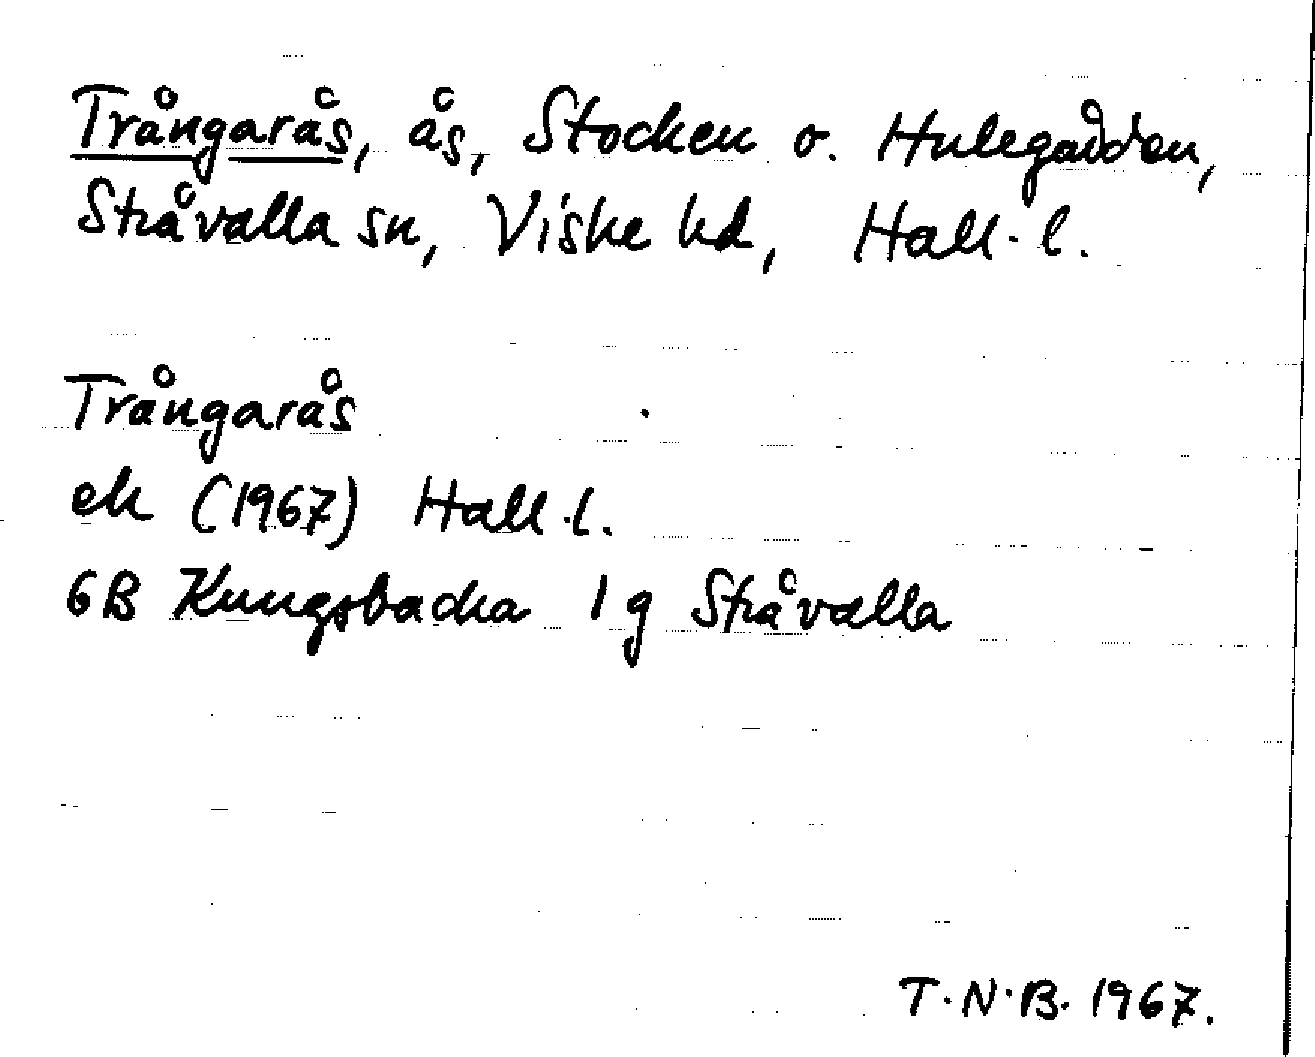 Trångarås, ås, Stocken o. Hulegården,
Stråvalla sn, Viske hd, Hall. l.
Trångarås
ek (1967) Hall. l.
6B Kungsbacka 1g Stråvalla
T.N.B. 1967.